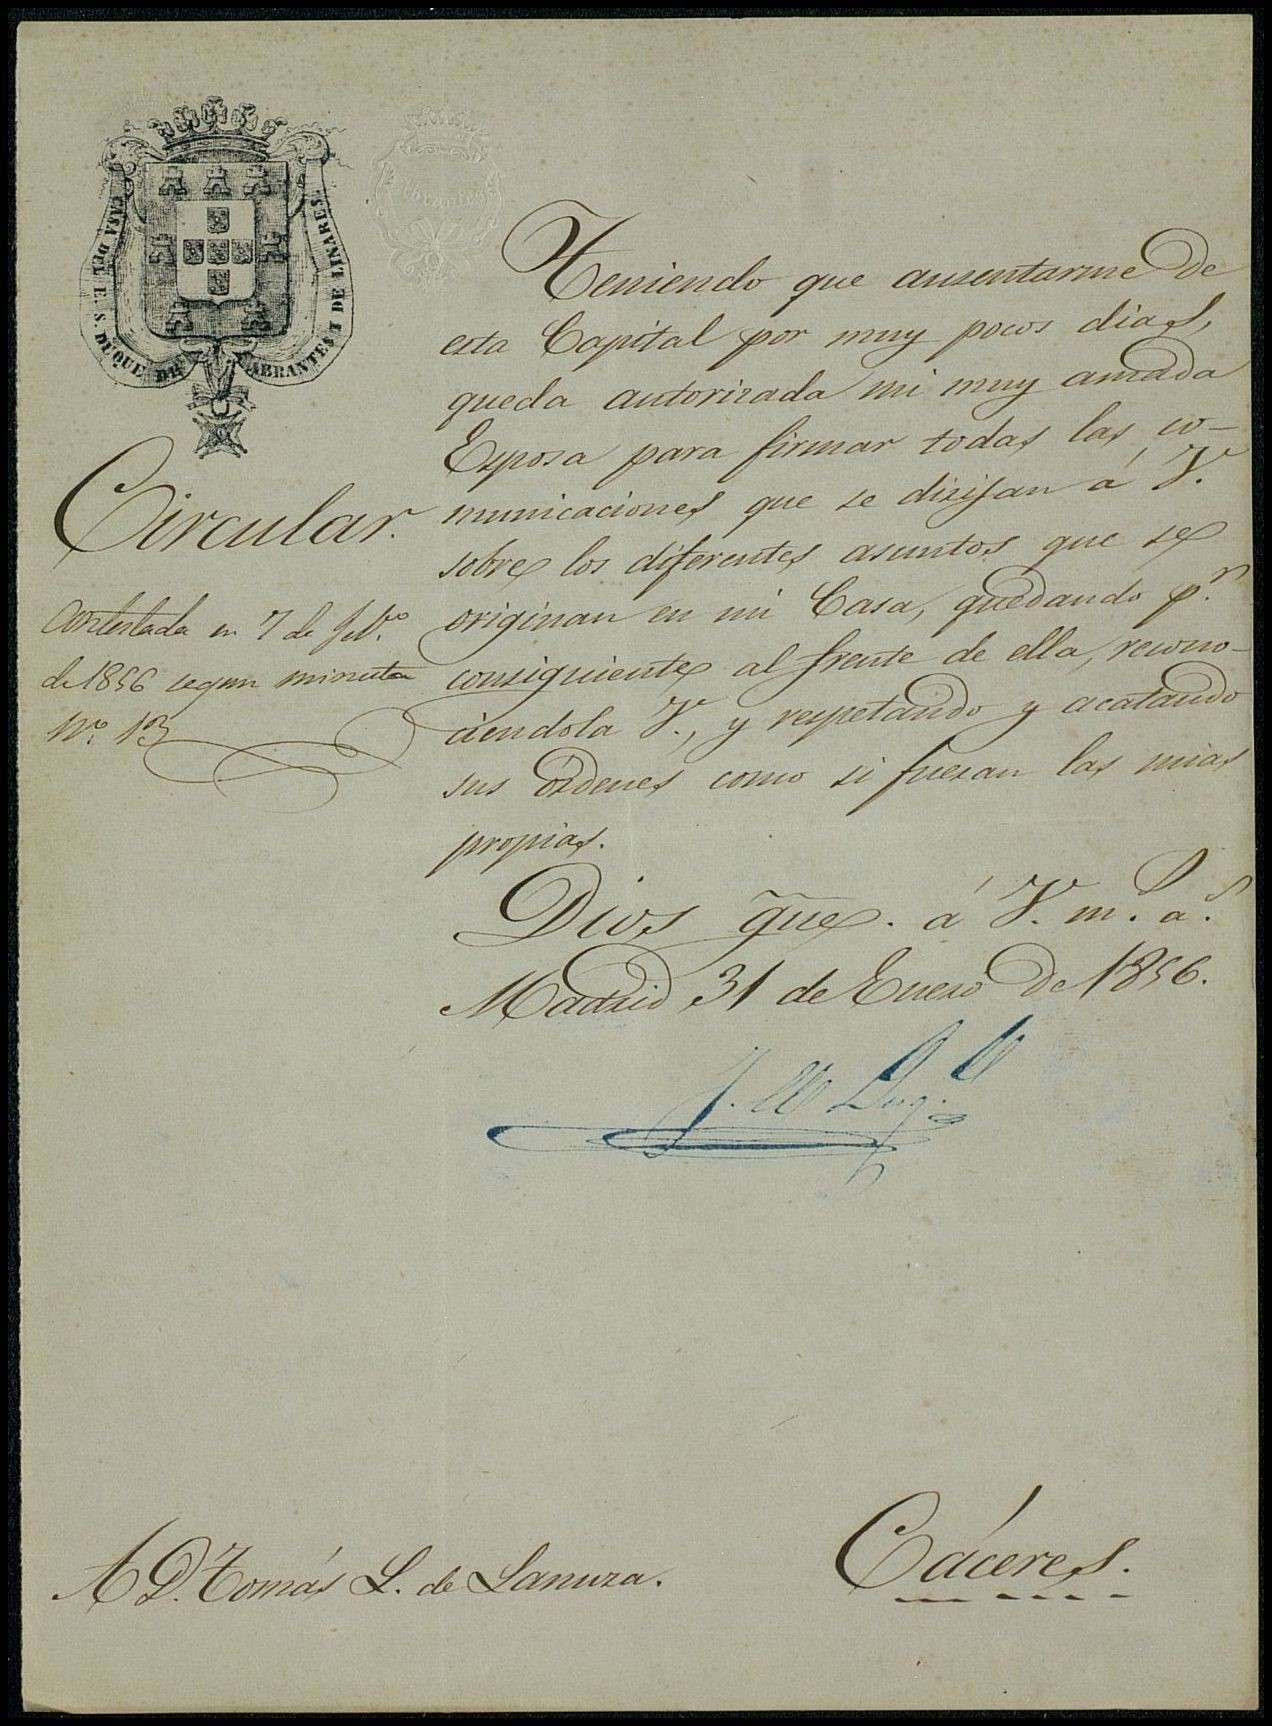 CASA DEL E. S. DUQUE DE ABRANTES Y DE LINARES.
Circular.
Contestada en 7 de Feb.º
de 1856 segun minuta
Nº. 13
Teniendo que ausentarme de
esta Capital por muy pocos dias,
queda autorizada mi muy amada
Esposa para firmar todas las co-
municaciones que se dirijan á V.
sobre los diferentes asuntos que se
originan en mi Casa, quedando p.r
consiguiente al frente de ella, recono-
ciendola V., y respetando y acatando
sus órdenes como si fueran las mias
propias.
Dios gũe. á V. m.s a.s
Madrid 31 de Enero de 1856.
A D. Tomás L. de Lanuza.
Cáceres.